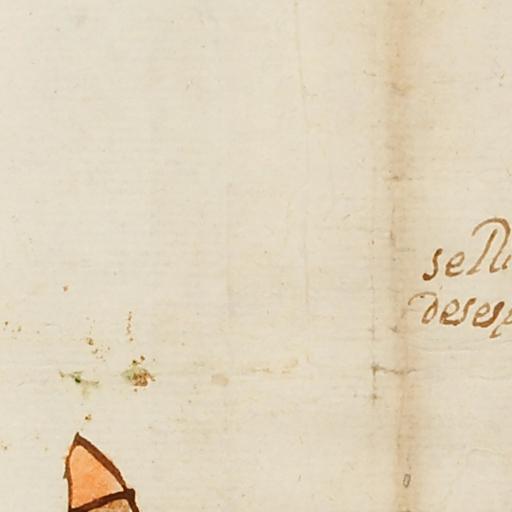 sell
desesp